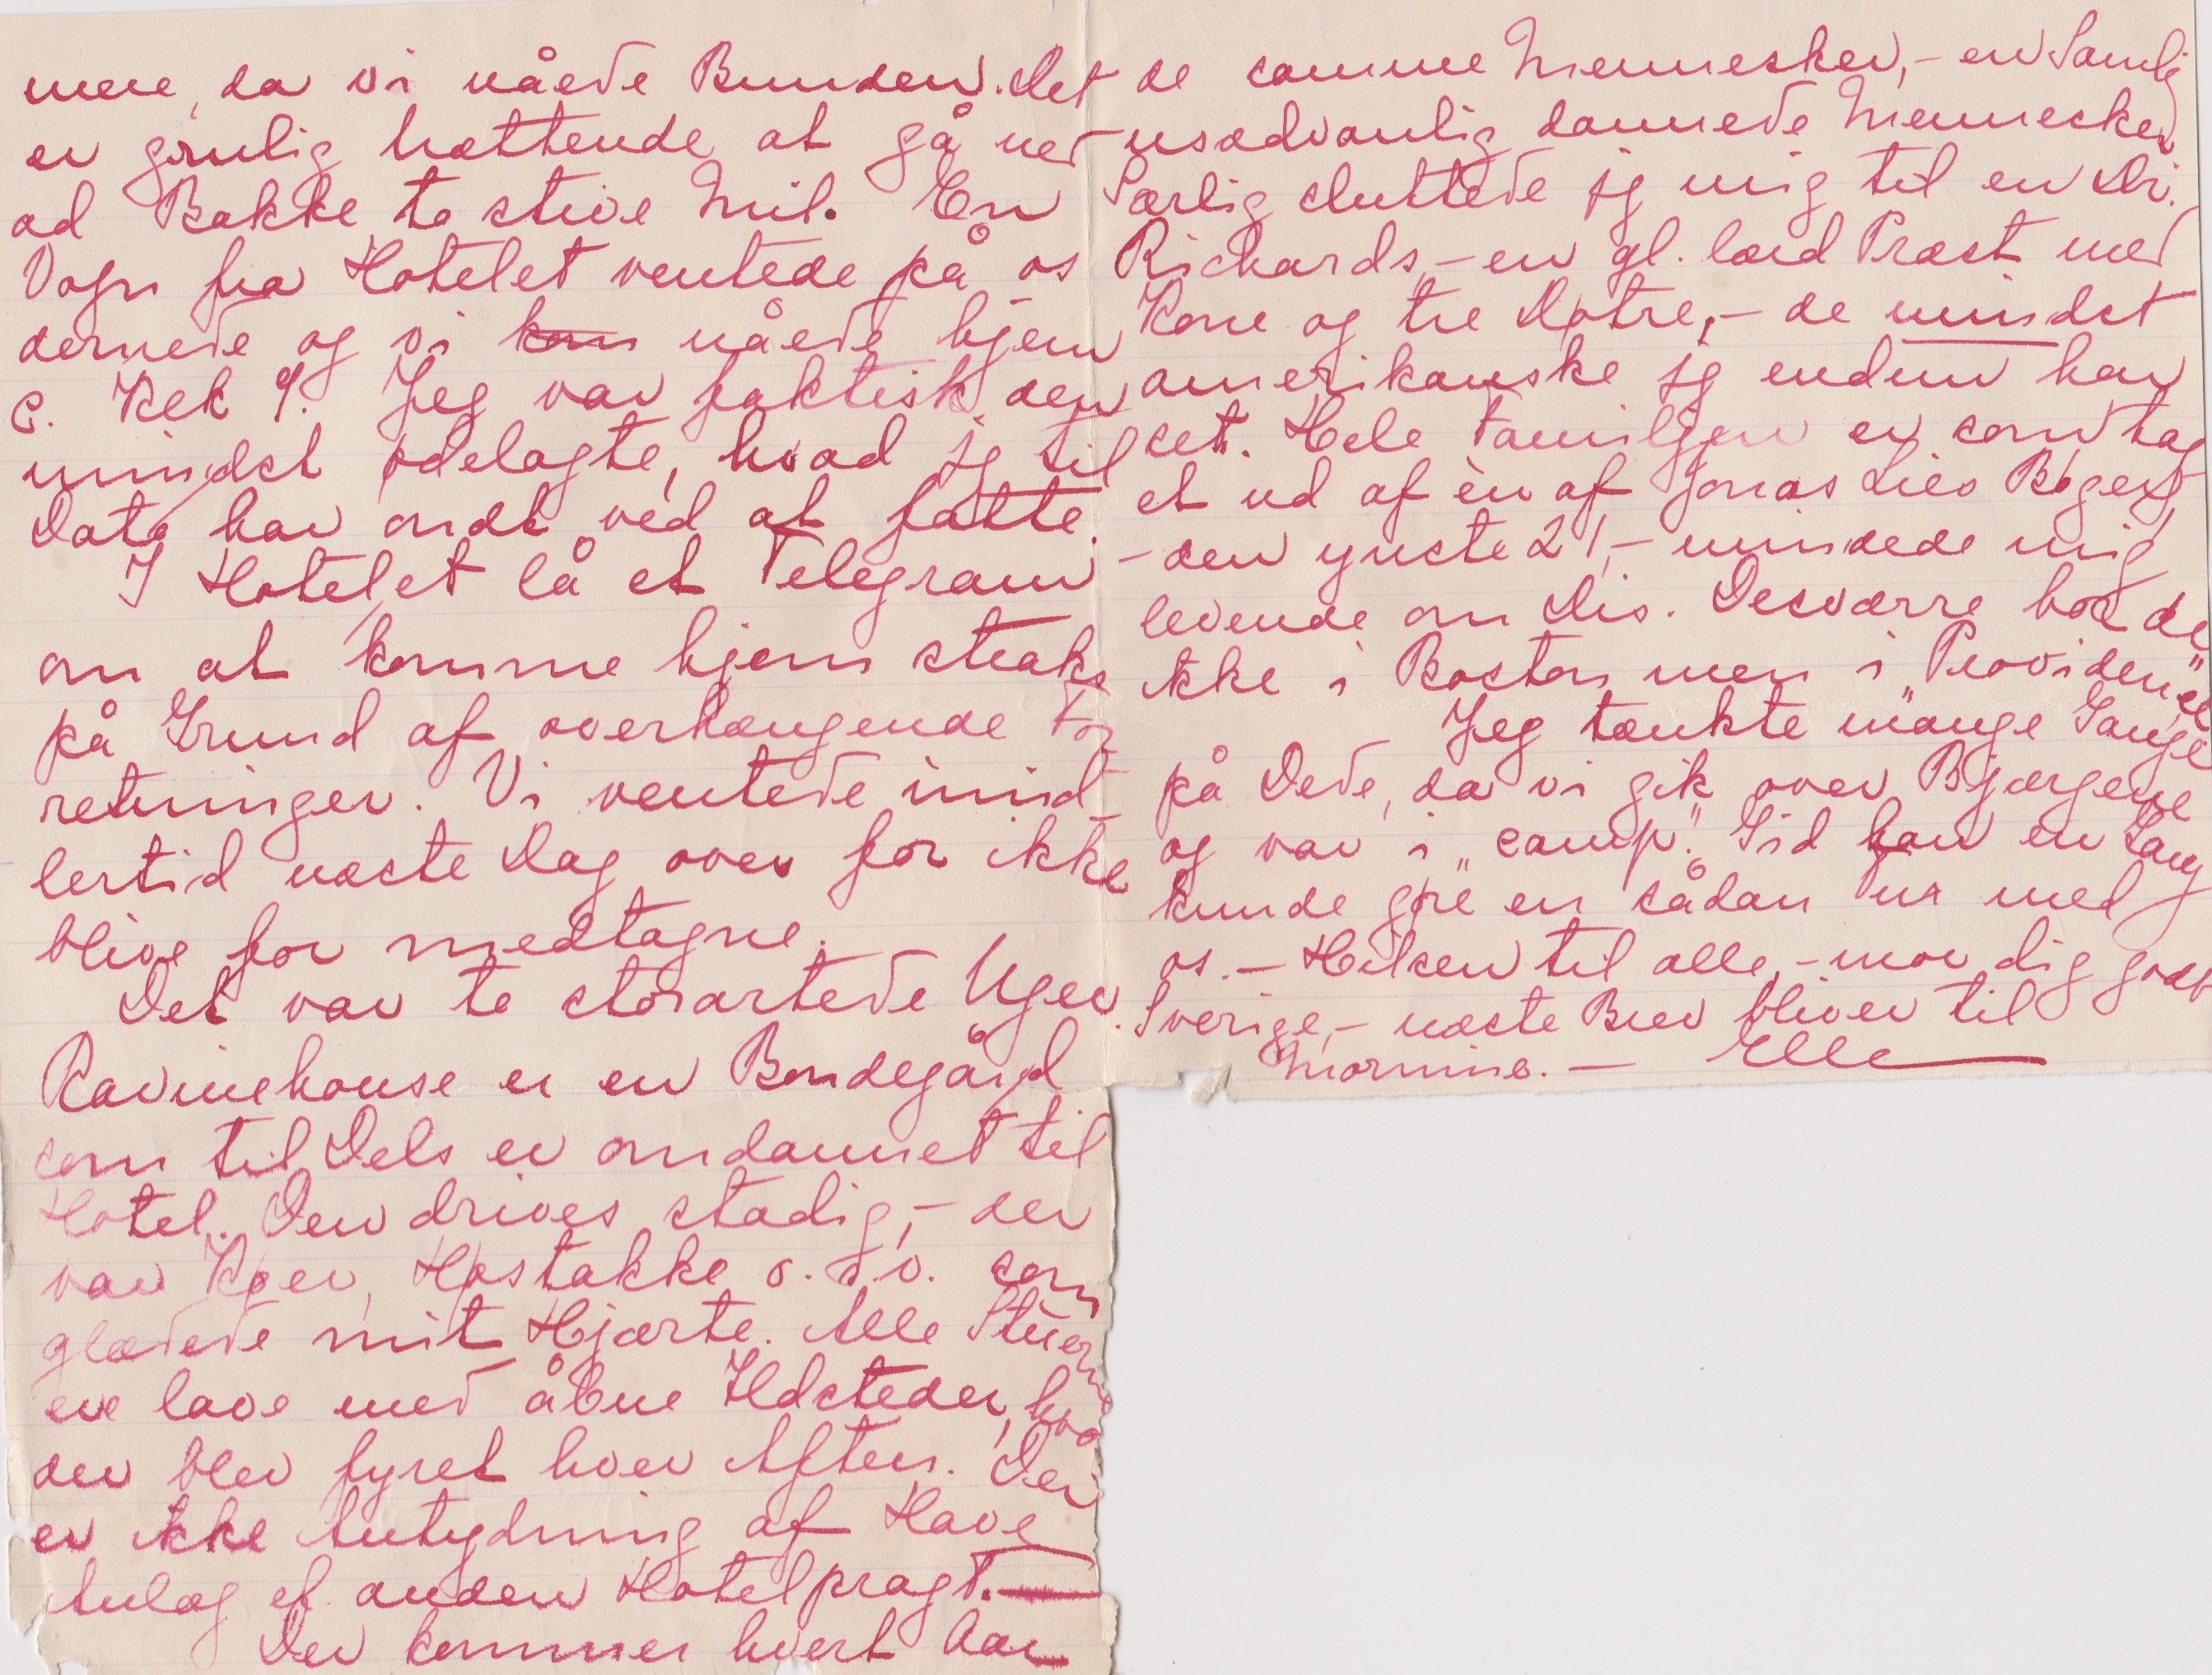 mere, da vi nåede Bunden. Det
er grulig trættende at gå ned
ad Bakke to stive Mil. En
Vogn fra Hotelet ventede på os
dernede og vi kom nåede hjem
c. Kek 9. Jeg var faktisk den
mindst ødelagte, hvad jg til
Dato har ondt ved at fatte.
I Hotellet lå et Telegram
om at komme hjem straks
på Grund af overhængende For
retninger. Vi ventede imid-
lertid næste Dag over for ikke
blive for medtagne.
Det var to storartede Uger.
Ravinehouse er en Bondegård
som til Dels er omdannet til
Hotel. Den drives stadig, - der
var Køer, Høstakke o.s.v. som
glædede mit Hjærte. Alle Stuerne
ere lave med åbne Ildsteder, hvo
der blev fyret hver Aften. Der
er ikke Antydning af Have
Anlæg el. anden Hotelpragt. —
Der kommer hvert Aar
de samme Mennesker, - en Samli
usædvanlig dannede Mennesker
Særlig sluttede jg mig til en Dr.
Richards, - en gl. lærd Præst med
Kone og tre Døtre, - de mindst
amerikanske jg endnu har
set. Hele Familjen er som tag
et ud af èn af Jonas Lies Bøger,
- den yngste 21, - mindede mig
levende om Dis. Desværre bor de
ikke i Boston men i "Providence"
Jeg tænkte mange Gange
på Dede, da vi gik over Bjærgene
og var i "camp". Gid han en Gang
kunde gøre en sådan Tur med
os. - Hilsen til alle, - mor dig godt
Sverige, - næste Brev bliver til
Mornine. — Elle